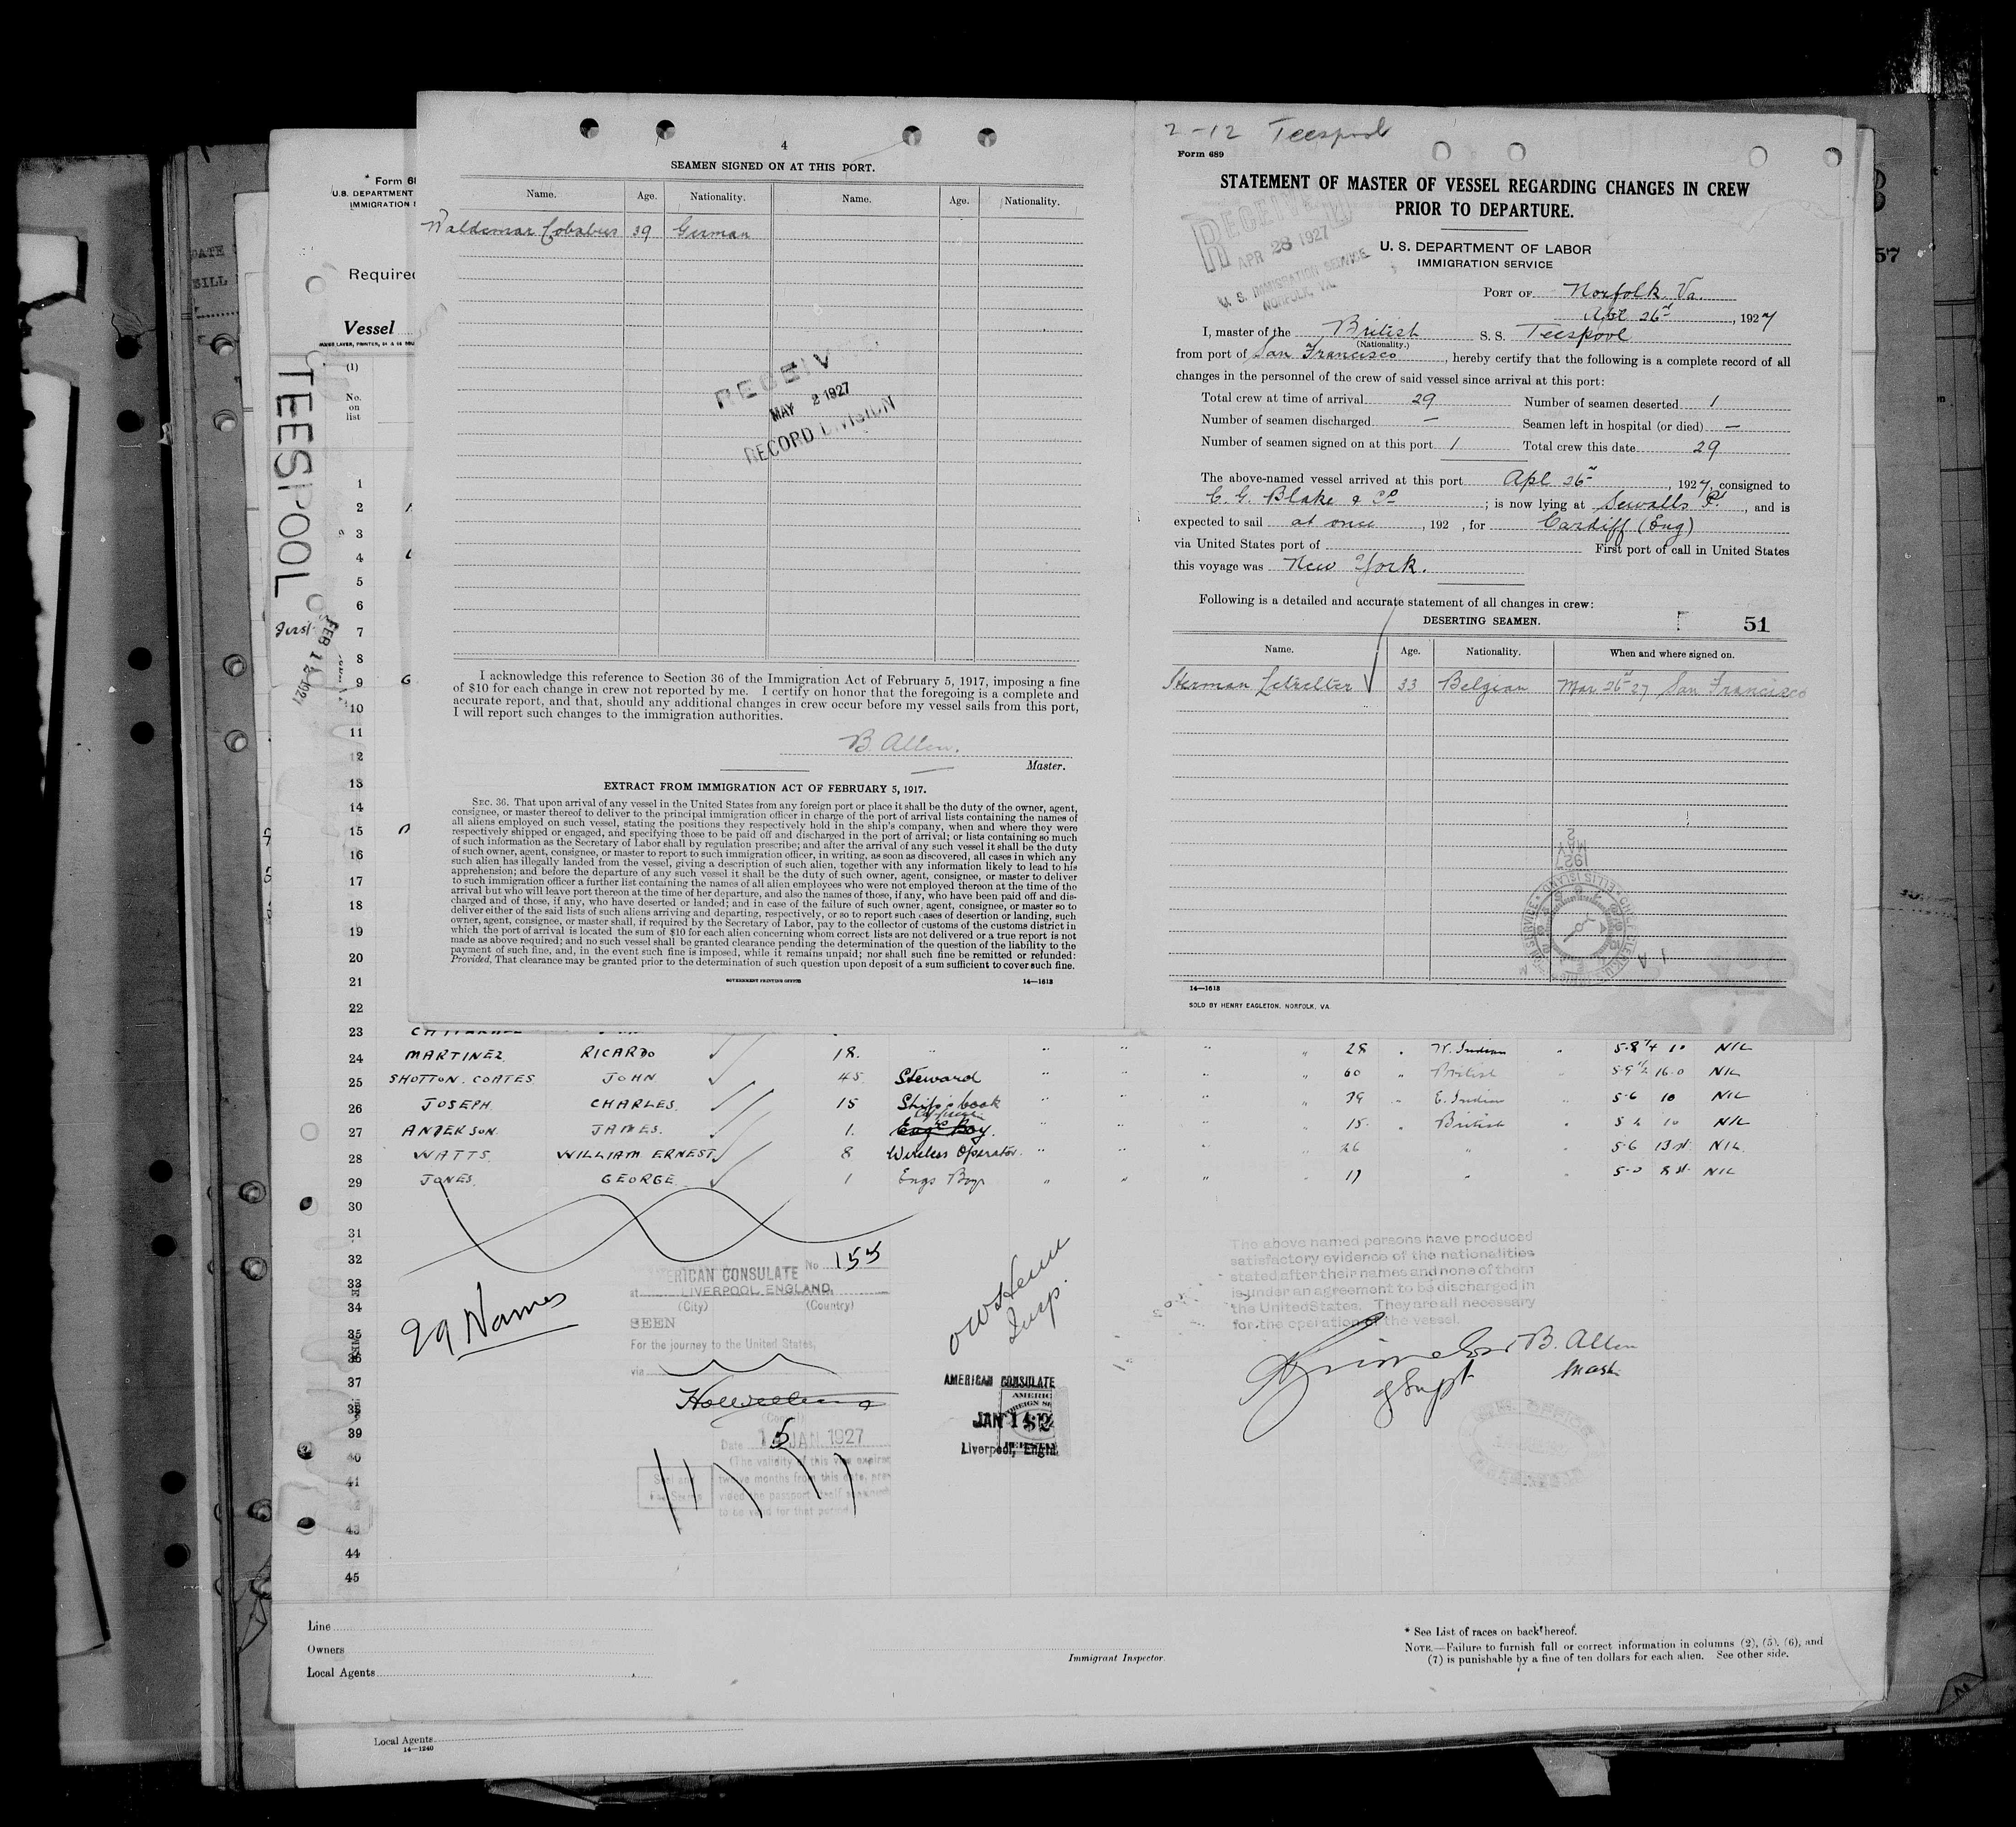 4
SEAMEN SIGNED ON AT THIS PORT.
Name. Age. Nationality. Name. Age. Nationality.
Waldemar Cobabus 39 German
RECEIV
MAY 2 1927
RECORD DIVISION
I acknowledge this reference to Section 36 of the Immigration Act of February 5, 1917, imposing a fine
of $10 for each change in crew not reported by me. I certify on honor that the foregoing is a complete and
accurate report, and that, should any additional changes in crew occur before my vessel sails from this port,
I will report such changes to the immigration authorities.
B. Allen.
Master.
EXTRACT FROM IMMIGRATION ACT OF FEBRUARY 5, 1917.
SEC. 36. That upon arrival of any vessel in the United States from any foreign port or place it shall be the duty of the owner, agent,
consignee, or master thereof to deliver to the principal immigration officer in charge of the port of arrival lists containing the names of
all aliens employed on such vessel, stating the positions they respectively hold in the ship's company, when and where they were
respectively shipped or engaged, and specifying those to be paid off and discharged in the port of arrival; or lists containing so much
of such information as the Secretary of Labor shall by regulation prescribe; and after the arrival of any such vessel it shall be the duty
of such owner, agent, consignee, or master to report to such immigration officer, in writing, as soon as discovered, all cases in which any
such alien has illegally landed from the vessel, giving a description of such alien, together with any information likely to lead to his
apprehension; and before the departure of any such vessel it shall be the duty of such owner, agent, consignee, or master to deliver
to such immigration officer a further list containing the names of all alien employees who were not employed thereon at the time of the
arrival but who will leave port thereon at the time of her departure, and also the names of those, if any, who have been paid off and dis-
charged and of those, if any, who have deserted or landed; and in case of the failure of such owner, agent, consignee, or master so to
deliver either of the said lists of such aliens arriving and departing, respectively, or so to report such cases of desertion or landing, such
owner, agent, consignee, or master shall, if required by the Secretary of Labor, pay to the collector of customs of the customs district in
which the port of arrival is located the sum of $10 for each alien concerning whom correct lists are not delivered or a true report is not
made as above required; and no such vessel shall be granted clearance pending the determination of the question of the liability to the
payment of such fine, and, in the event such fine is imposed, while it remains unpaid; nor shall such fine be remitted or refunded:
Provided, That clearance may be granted prior to the determination of such question upon deposit of a sum sufficient to cover such fine.
GOVERNMENT PRINTING OFFICE 14—1613
2-12 Teespool
Form 689
STATEMENT OF MASTER OF VESSEL REGARDING CHANGES IN CREW
PRIOR TO DEPARTURE.
RECEIVED
APR 28 1927
U. S. IMMIGRATION SERVICE
NORFOLK, VA.
U. S. DEPARTMENT OF LABOR
IMMIGRATION SERVICE
PORT OF Norfolk Va.
Apl 26th, 1927
I, master of the British S. S. Teespool
(Nationality.)
from port of San Francisco, hereby certify that the following is a complete record of all
changes in the personnel of the crew of said vessel since arrival at this port:
Total crew at time of arrival 29 Number of seamen deserted 1
Number of seamen discharged — Seamen left in hospital (or died) —
Number of seamen signed on at this port 1 Total crew this date 29
The above-named vessel arrived at this port Apl 26th, 1927, consigned to
C. G. Blake & Co; is now lying at Sewalls Pt., and is
expected to sail at once, 192 , for Cardiff (Eng)
via United States port of First port of call in United States
this voyage was New York.
Following is a detailed and accurate statement of all changes in crew:
DESERTING SEAMEN.
51
Name. Age. Nationality. When and where signed on.
Herman 33 Belgian Mar 26th 27 San Francisco
1927
MAY
2
14—1613
SOLD BY HENRY EAGLETON, NORFOLK, VA.
* Form 68
U.S. DEPARTMENT
IMMIGRATION
Required
Vessel
TEESPOOL
First
FEB 1927
(1)
No.
on
list
1
2
3
4
5
6
7
8
9
10
11
12
13
14
15
16
17
18
19
20
21
22
23
24 MARTINEZ RICARDO 18. " " " " " 28 " W. Indian " 5-8¼ 10 NIL
25 SHOTTON. COATES JOHN 45 Steward " " " " 60 " British " 5-9½ 16.0 NIL
26 JOSEPH CHARLES 15 Ship's Cook " " " " 39 " E. Indian " 5-6 10 NIL
27 ANDERSON JAMES. 1. Engrs Boy. " " " " 15 " British " 5 2 10 NIL
28 WATTS WILLIAM ERNEST 8 Wireless Operator " " " " 26 " " 5-6 13 st NIL
29 JONES. GEORGE 1 Engs Boy " " " " 17 " " 5-0 8 st NIL
30
31
32
33
34
35
36
37
38
39
40
41
43
44
45
29 Names
No 155
AMERICAN CONSULATE
at LIVERPOOL, ENGLAND.
(City) (Country)
SEEN
For the journey to the United States,
via
(Consul)
Date 15 JAN 1927
(The validity of this visa expires
twelve months from this date, pro-
vided the passport itself
to be valid for that period
Seal and
Fee Stamp
Insp.
AMERICAN CONSULATE
JAN 14
Liverpool, Engla
The above named persons have produced
satisfactory evidence of the nationalities
stated after their names and none of them
is under an agreement to be discharged in
the United States. They are all necessary
for the operation of the vessel.
B. Allen
Mast.
Supt
Line
Owners
Local Agents
Immigrant Inspector.
* See List of races on back hereof.
NOTE.—Failure to furnish full or correct information in columns (2), (5), (6), and
(7) is punishable by a fine of ten dollars for each alien. See other side.
Local Agents
14—1240
57